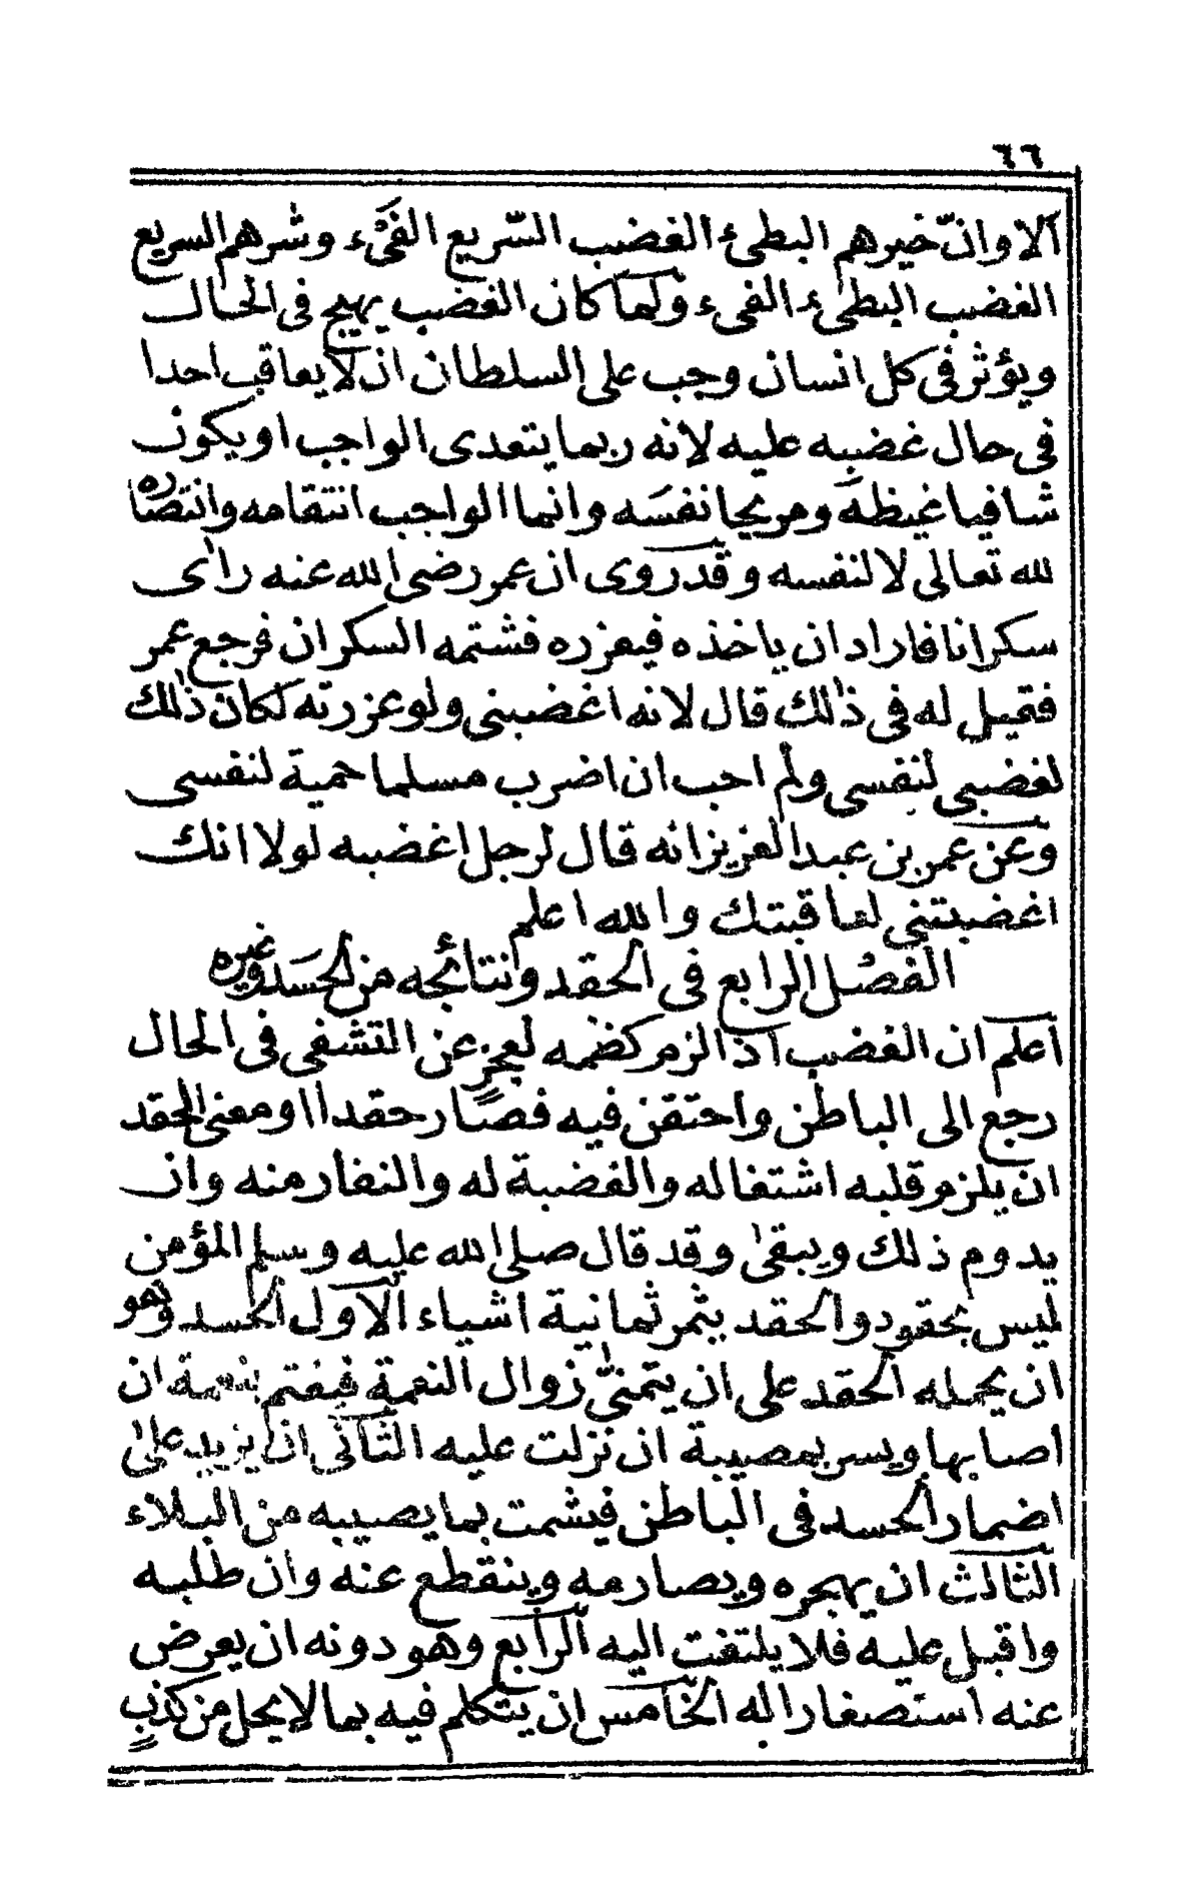 ٦٦
ألا وانّ خيرهم البطئ الغضب السّريع الفَىْء وشرهم السريع
الغضب البطئ الفىء ولما كان الغضب يهيج فى الحال
ويؤثر فى كل انسان وجب على السلطان ان لا يعاقب احدا
فى حال غضبه عليه لانه ربما يتعدى الواجب او يكون
شافيا غيظه ومريحا نفسَه وانما الواجب انتقامه وانتصاره
لله تعالى لا لنفسه وقد روى ان عمر رضى الله عنه رأى
سكرانا فاراد ان ياخذه فيعزره فشتمه السكران فرجع عمر
فقيل له فى ذلك قال لانه اغضبنى ولو عزرته لكان ذلك
لغضبى لنفسى ولم احب ان اضرب مسلما حمية لنفسى
وعن عمر بن عبد العزيز انه قال لرجل اغضبه لولا انك
اغضبتنى لعاقبتك والله اعلم
الفصل الرابع فى الحقد ونتائجه من الحسد وغيره
اعلم ان الغضب اذا لزم كظمه لعجزٍ عن التشفى فى الحال
رجع الى الباطن واحتقن فيه فصار حقدا ا ومعنى الحقد
ان يلزم قلبه اشتغاله والغضبة له والنفار منه وان
يدوم ذلك ويبقىٰ وقد قال صلى الله عليه وسلم المؤمن
ليس بحقود والحقد يثمر ثمانية اشياء الآول الحسد وهو
ان يحمله الحقد على ان يتمنىّ زوال النعمة فيغتم بنعمة ان
اصابها ويسر بمصيبة ان نزلت عليه الثانى ان يزيد علىٰ
اضمار الحسد فى الباطن فيشمت بما يصيبه من البلاء
الثالث ان يهجره ويصارمه وينقطع عنه وان طلبه
واقبل عليه فلا يلتفت اليه الرابع وهو دونه ان يعرض
عنه استصغارا له الخامس ان يتكلم فيه بما لا يحل من كذبٍ